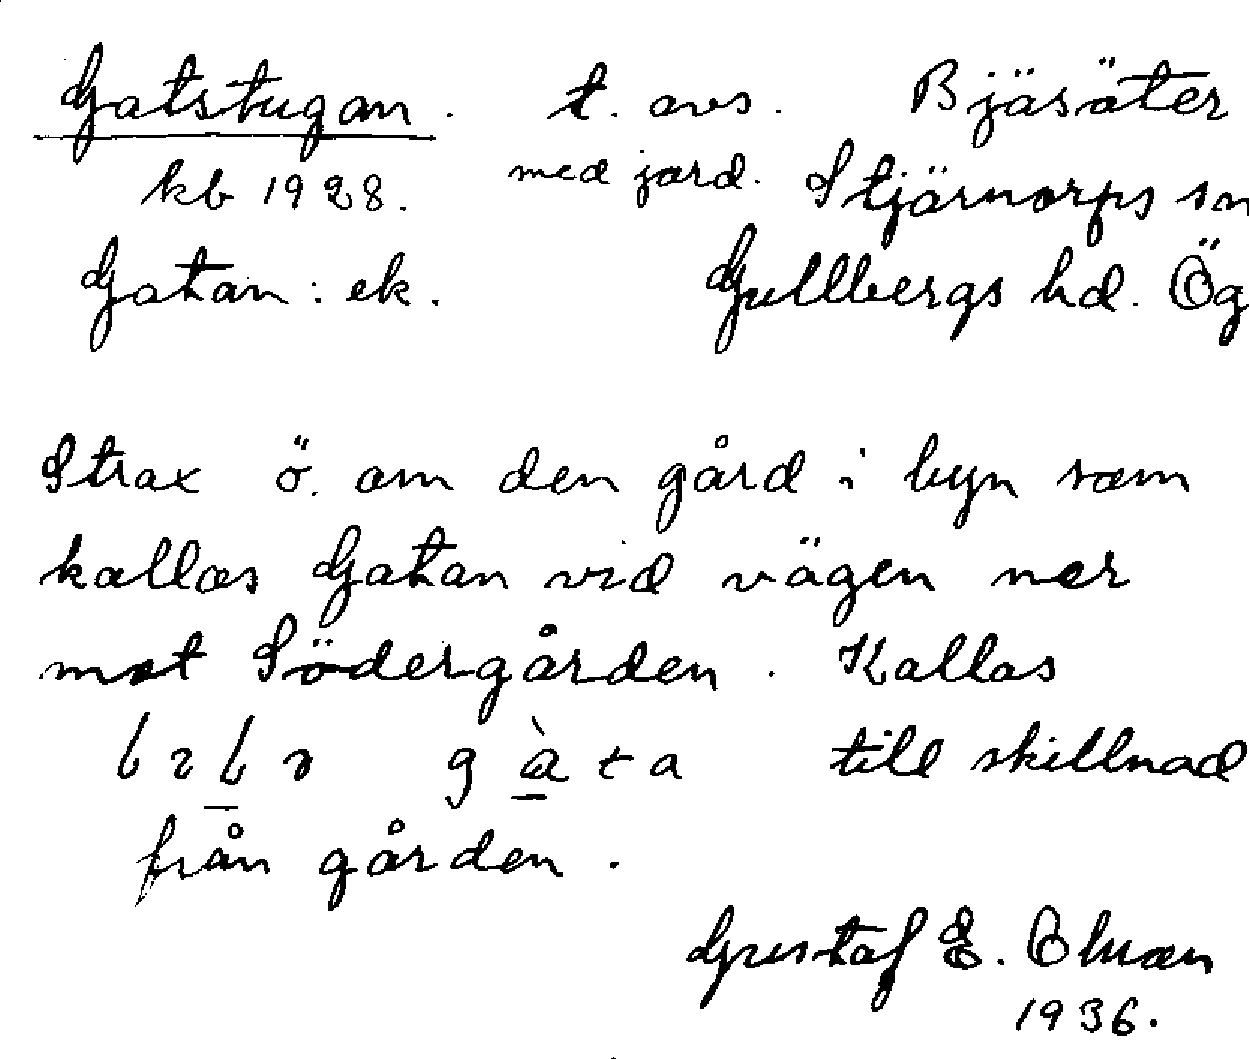 Gatstugan. t. avs. Bjäsäter
kb 1928. med jord. Stjärnorps sn
Gatan: ek. Gullbergs hd. Ög
Strax ö. om den gård i byn som
kallas Gatan vid vägen ner
mot Södergården. Kallas
gàta till skillnad
från gården.
Gustaf E. Ohman
1936.